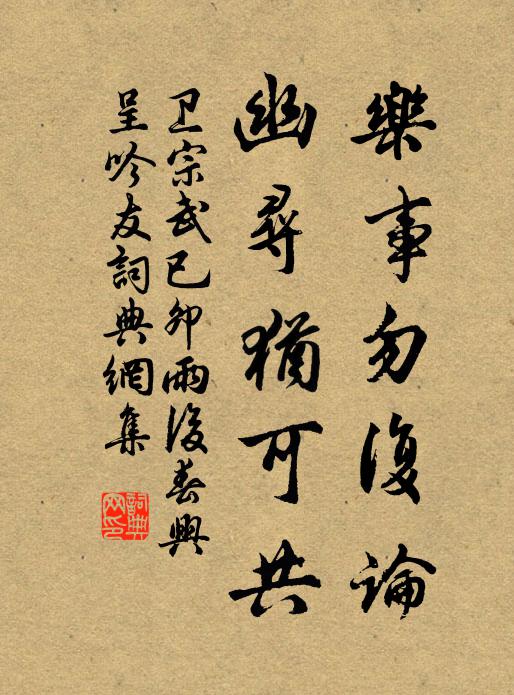 樂事勿復論
幽尋猶可共
卫宗武己卯雨後春興
呈吟友詞典網集
詞典網印